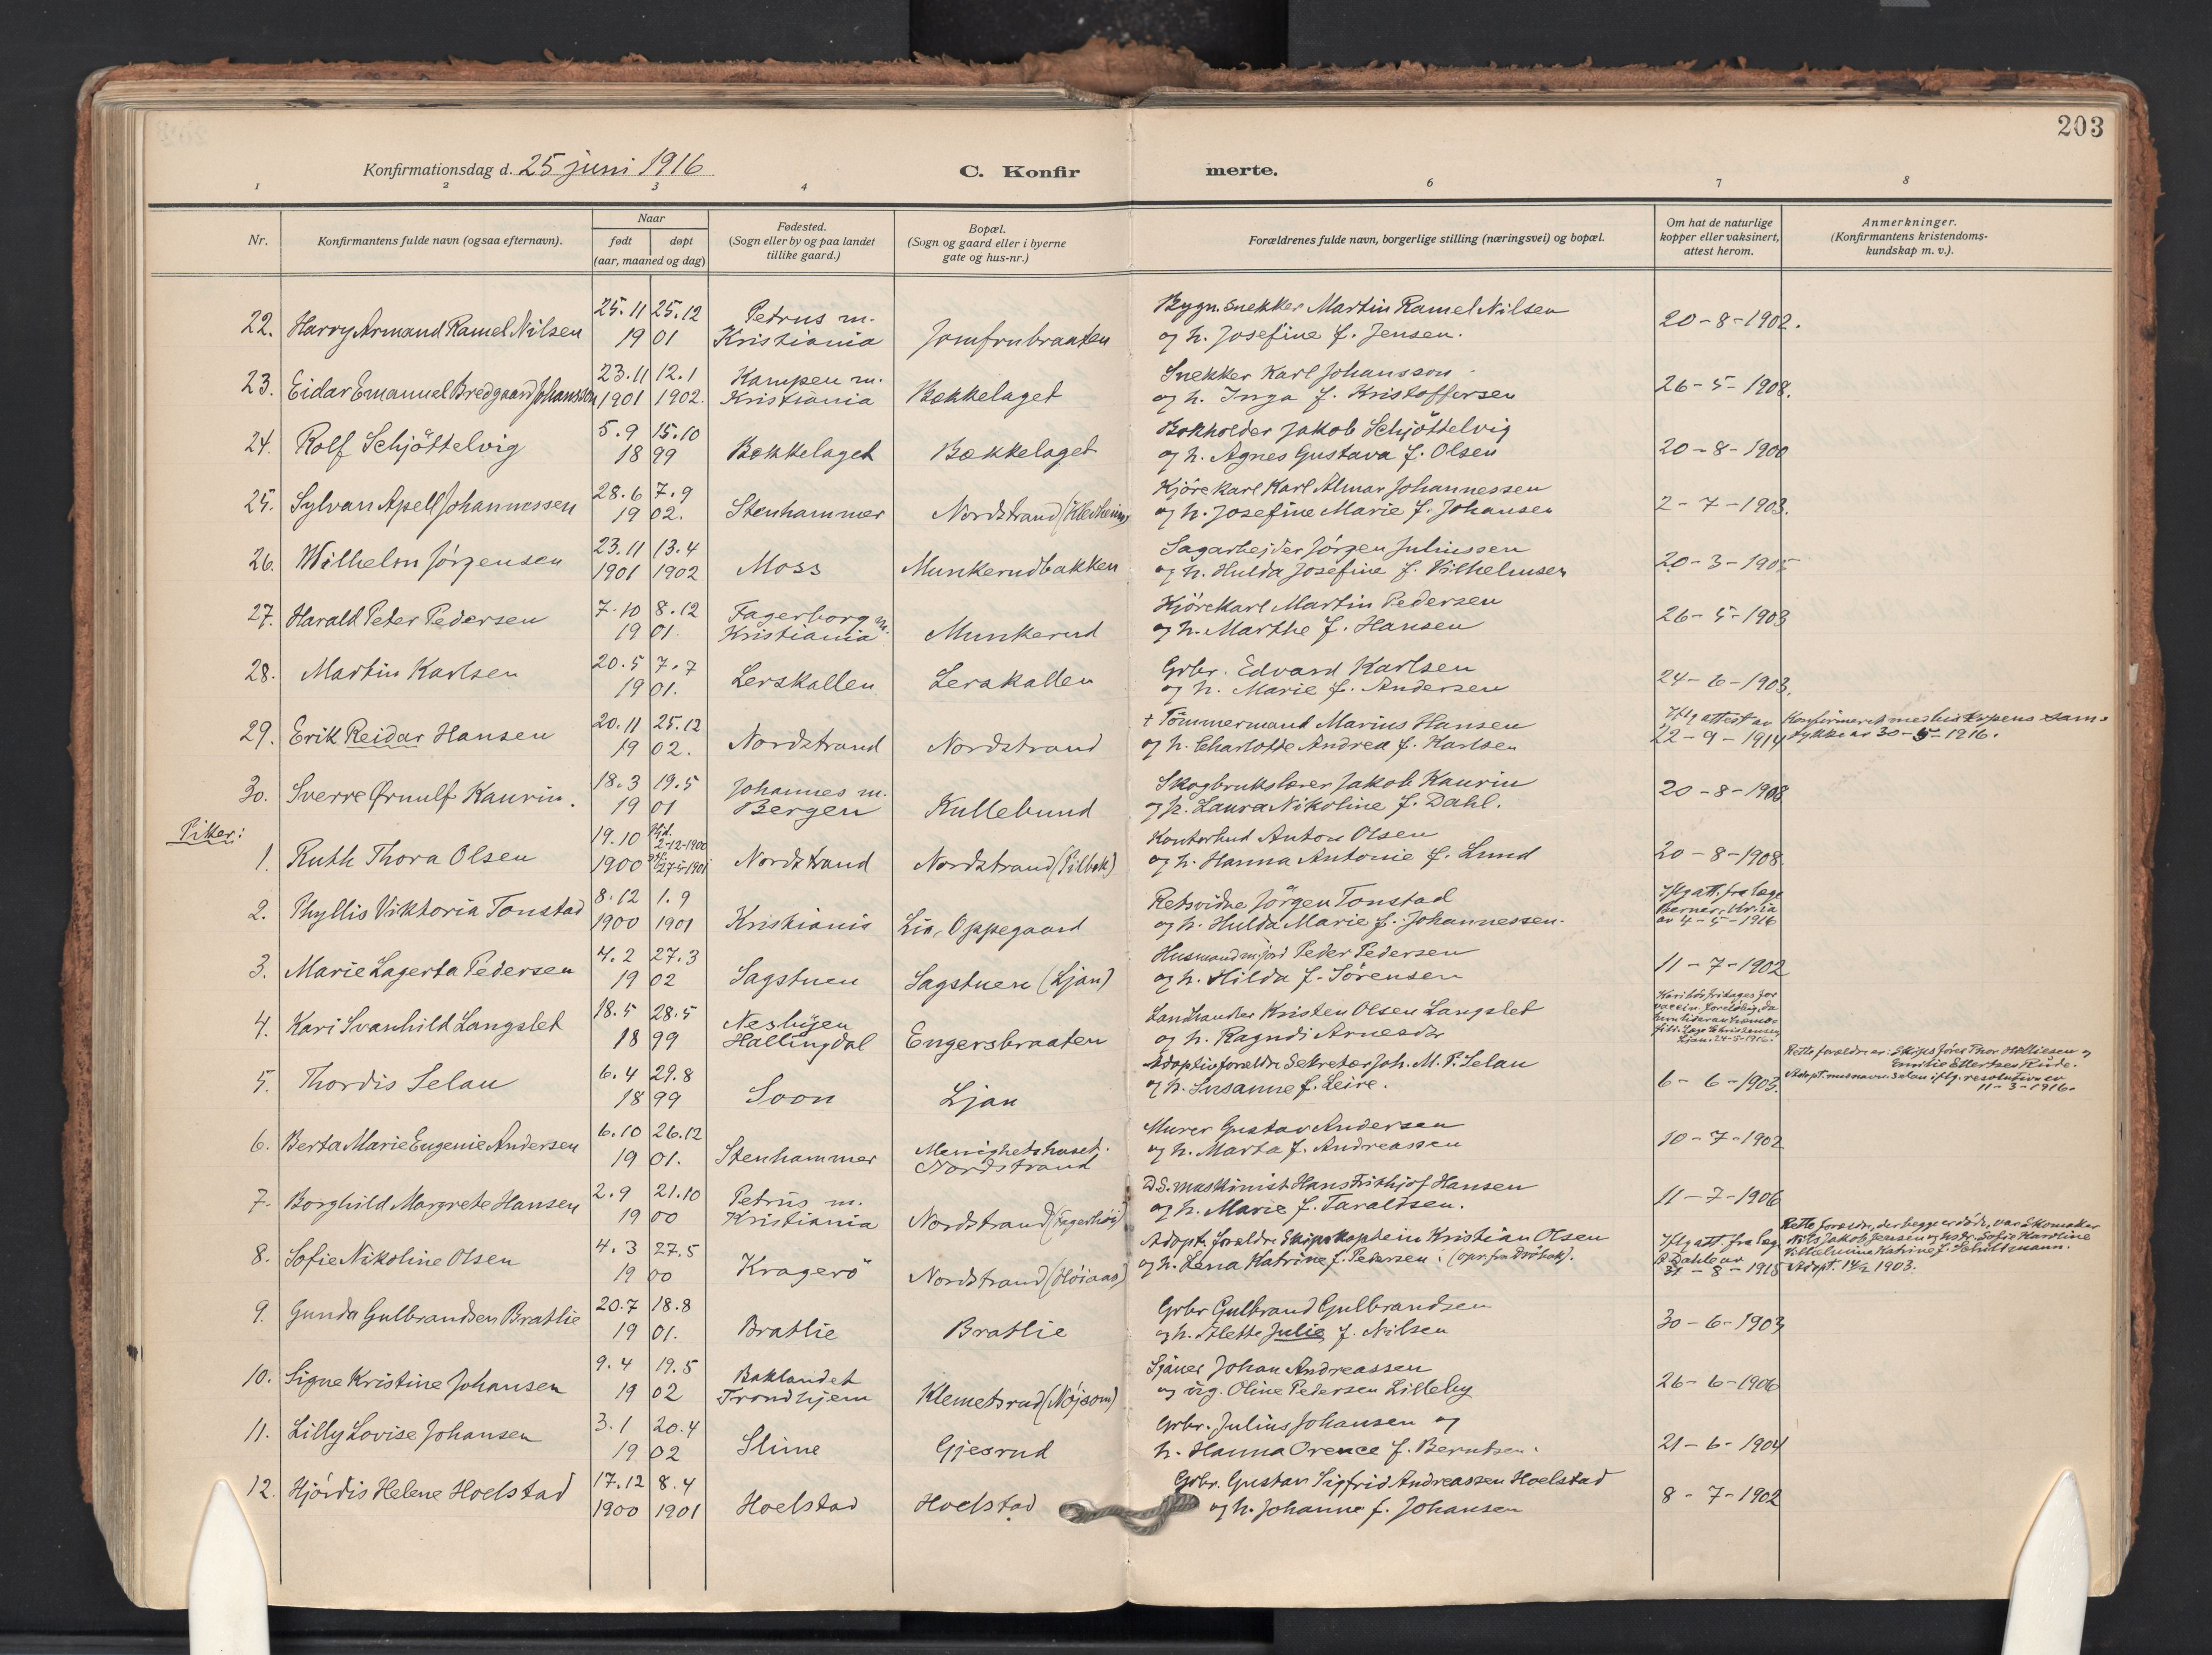 203
Konfirmationsdag d. 25 juni 1916
C. Konfirmerte.
1 2 3 4 6 7 8
Nr. Konfirmantens fulde navn (ogsaa efternavn). Naar født døpt (aar, maaned og dag) Fødested. (Sogn eller by og paa landet tillike gaard.) Bopæl. (Sogn og gaard eller i byerne gate og hus-nr.) Forældrenes fulde navn, borgerlige stilling (næringsvei) og bopæl. Om hat de naturlige kopper eller vaksinert, attest herom. Anmerkninger. (Konfirmantens kristendoms-kundskap m. v.).
22. Harry Armand Ramel Nilsen 25.11 25.12 1901 Petrus m. Kristiania Jomfrubraaten Bygn. snekker Martin Ramel Nilsen og h. Josefine f. Jensen. 20-8-1902.
23. Eidar Emanuel Bredgaard Johansson 23.11 1901 12.1 1902. Kampen m. Kristiania Bækkelaget Snekker Karl Johansson og h. Inga f. Kristoffersen 26-5-1908.
24. Rolf Schjöttelvig 5.9 15.10 1899 Bækkelaget Bækkelaget Bokholder Jakob Schjöttelvig og h. Agnes Gustava f. Olsen 20-8-1900
25. Sylvan Apell Johannessen 28.6 7.9 1902. Stenhammer Nordstrand Kjörekarl Karl Almar Johannessen og h. Josefine Marie f. Johansen 2-7-1903.
26. Wilhelm Jörgensen 23.11 1901 13.4 1902 Moss Munkerudbakken Sagarbejder Jörgen Juliussen og h. Hulda Josefine f. Vilhelmsen 20-3-1905
27. Harald Peter Pedersen 7.10 8.12 1901. Fagerborg m. Kristiania Munkerud Kjörekarl Martin Pedersen og h. Marthe f. Hansen 26-5-1903
28. Martin Karlsen 20.5 7.7 1901. Lerskallen Lerskallen Grbr. Edvard Karlsen og h. Marie f. Andersen 24-6-1903.
29. Erik Reidar Hansen 20.11 25.12 1902. Nordstrand Nordstrand † Tömmermand Marius Hansen og h. Charlotte Andrea f. Karlsen Iflg attest av 22-9-1914 Konfirmeret med biskopens samtykke av 30-5-1916.
30. Sverre Ørnulf Kaurin. 18.3 19.5 1901 Johannes m. Bergen Kullebund Skogbrukslærer Jakob Kaurin og h. Laura Nikoline f. Dahl. 20-8-1908
Piker:
1. Ruth Thora Olsen 19.10 1900 Hjd. 2-12-1900 27-5-1901 Nordstrand Nordstrand (Pilbak) Kontorbud Anton Olsen og h. Hanna Antonie f. Lund 20-8-1908.
2. Phyllis Viktoria Tonstad 8.12 1900 1.9 1901 Kristiania Lia, Oppegaard Retsvidne Jörgen Tonstad og h. Hulda Marie f. Johannessen. Iflg att. fra læge Berner, Kr.ia av 4-5-1916
3. Marie Lagerta Pedersen 4.2 27.3 1902 Sagstuen Sagstuen (Ljan) Husmand m. jord Peder Pedersen og h. Hilda f. Sörensen 11-7-1902
4. Kari Svanhild Langslet 18.5 28.5 1899 Nesbyen Hallingdal Engersbraaten Landhandler Kristen Olsen Langslet og h. Ragndi Arnesdtr Kari bör fritages for vaccin. foreløbig, da hun lider av Læge Christensen Ljan. 24-5-1916.
5. Thordis Selau 6.4 29.8 1899 Soon Ljan Adoptivforældre Sekretær Joh. M. P. Selau og h. Susanne f. Leire. 6-6-1903. Rette forældre er: Skipsförer Thor Mathiesen og Emilie Ellertsen Rüde. Adopt. m. navn: Selau iflg. resolution av 11-3-1916.
6. Berta Marie Eugenie Andersen 6.10 26.12 1901. Stenhammer Menighetshuset. Nordstrand Murer Gustav Andersen og h. Marta f. Andreassen 10-7-1902
7. Borghild Margrete Hansen 2.9 21.10 1900 Petrus m. Kristiania Nordstrand (Fagerhöi) D.S. maskinist Hans Frithjof Hansen og h. Marie f. Taraldsen. 11-7-1906
8. Sofie Nikoline Olsen 4.3 27.5 1900 Kragerö Nordstrand (Höiaas) Adopt. forældre Skipskaptein Kristian Olsen og h. Lena Katrine f. Pedersen (opr. fra Dröbak). Iflg att fra læge Dahle av 31-8-1915 Rette forældre, der begge er döde, var Skomaker Nils Jakob Jensen og hstr. Sofie Karoline Vilhelmina Katrine f. Schültzmann. Adopt. 14/2 1903.
9. Gunda Gulbrandsen Bratlie 20.7 18.8 1901. Bratlie Bratlie Grbr Gulbrand Gulbrandsen og h. Alette Julie f. Nilsen 30-6-1903
10. Signe Kristine Johansen 9.4 19.5 1902 Baklandet Trondhjem Klemetsrud (Nöjsom) Sjauer Johan Andreassen og ug. Oline Pedersen Lilleby 26-6-1906
11. Lilly Lovise Johansen 3.1 20.4 1902 Slime Gjesrud Grbr. Julius Johansen og h. Hanna Orence f. Berntsen. 21-6-1904
12. Hjördis Helene Hoelstad 17.12 1900 8.4 1901 Hoelstad Hoelstad Grbr. Gustav Sigfrid Andreassen Hoelstad og h. Johanne f. Johansen 8-7-1902